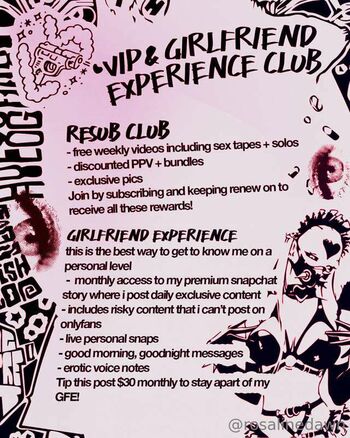 VIP & GIRLFRIEND
EXPERIENCE CLUB
RESUB CLUB
- free weekly videos including sex tapes + solos
- discounted PPV + bundles
- exclusive pics
Join by subscribing and keeping renew on to
receive all these rewards!
GIRLFRIEND EXPERIENCE
this is the best way to get to know me on a
personal level
- monthly access to my premium snapchat
story where i post daily exclusive content
- includes risky content that i can't post on
onlyfans
- live personal snaps
- good morning, goodnight messages
- erotic voice notes
Tip this post $30 monthly to stay apart of my
GFE!